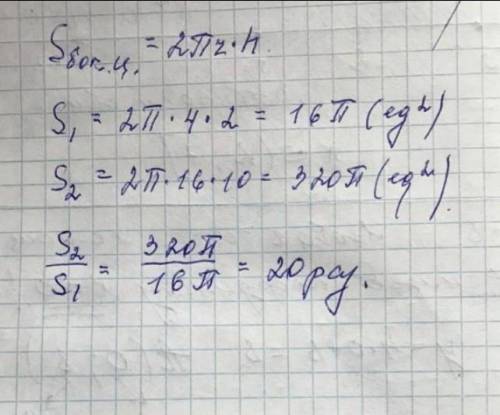 Sбок.ц. = 2Пr·h.
S₁ = 2П·4·2 = 16П (ед²)
S₂ = 2П·16·10 = 320П (ед²).
S₂/S₁ = 320П/16П = 20